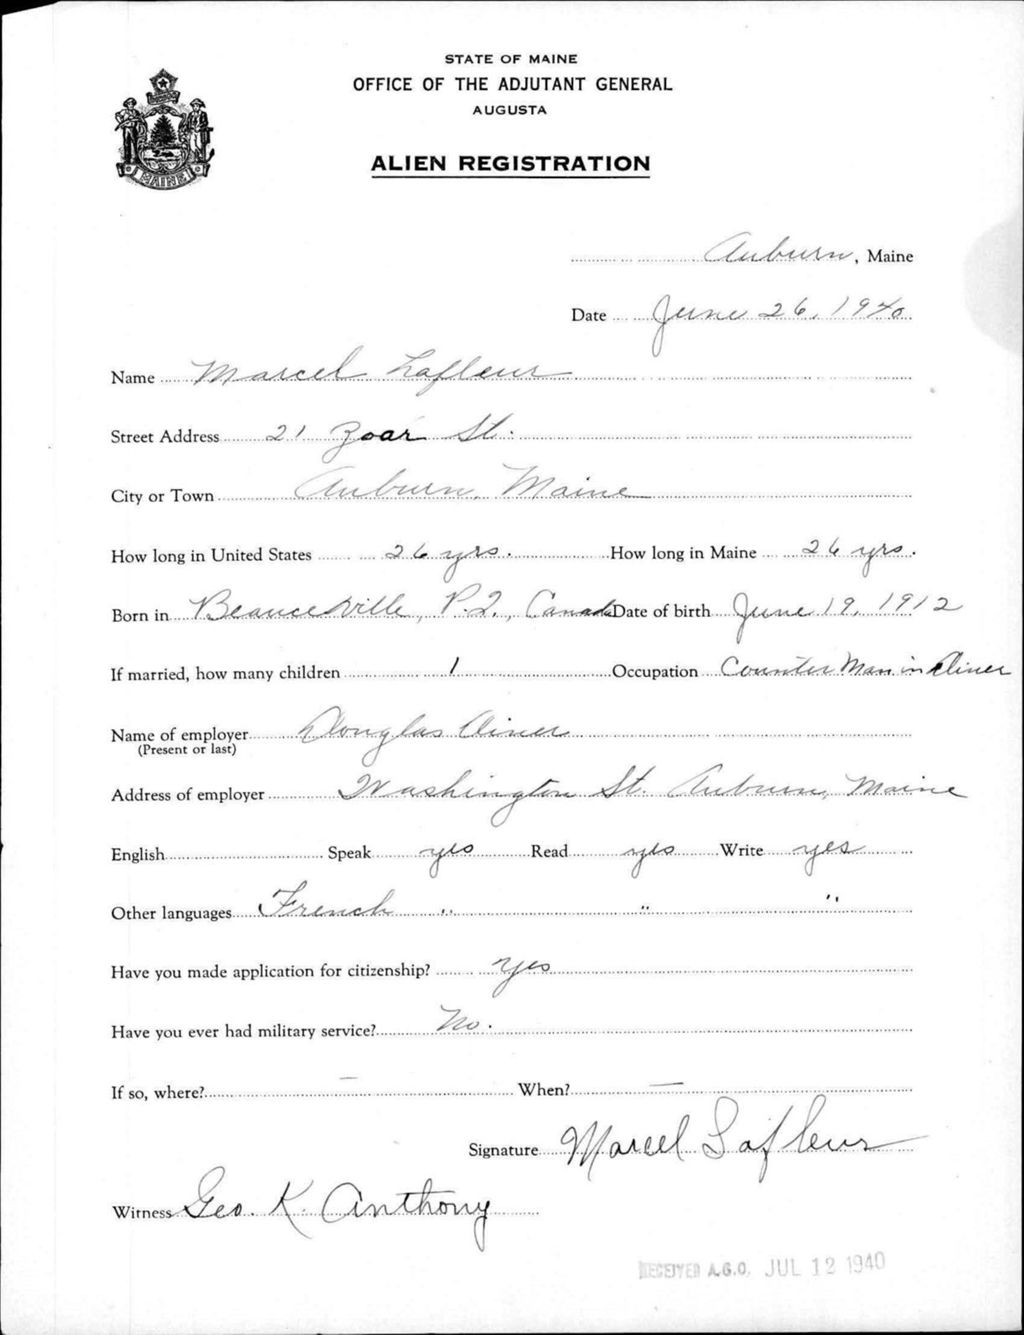 STATE OF MAINE
OFFICE OF THE ADJUTANT GENERAL
AUGUSTA
ALIEN REGISTRATION
MAINE
Auburn, Maine
Date June 26, 1940
Name Marcel Lafleur
Street Address 21 Zoar St.
City or Town Auburn, Maine
How long in United States 26 yrs. How long in Maine 26 yrs.
Born in Beauceville, P.Q., Canada Date of birth June 19, 1912
If married, how many children 1 Occupation Counter Man in Diner
Name of employer Douglas Diner
(Present or last)
Address of employer Washington St. Auburn, Maine
English Speak yes Read yes Write yes
Other languages French " " "
Have you made application for citizenship? Yes
Have you ever had military service? No.
If so, where? — When? —
Signature Marcel Lafleur
Witness Geo. K. Anthony
RECEIVED A.G.O. JUL 12 1940